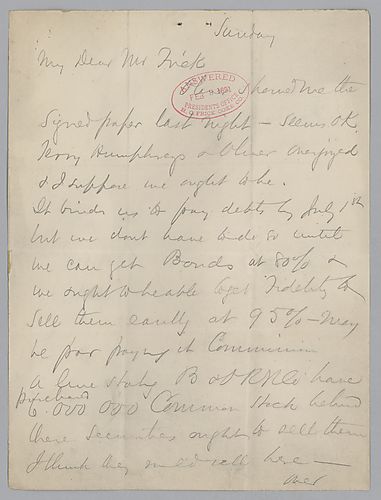 Sunday
My Dear Mr Frick
ANSWERED
FEB 9 1891
PRESIDENTS OFFICE
H. C. FRICK COKE CO.
showed me the
signed paper last night – seems O.K.
Humphreys & Oliver overjoyed
& I suppose we ought to be.
It binds us to pay debts by July 1st
but we dont have to do so until
we can get Bonds at 80% &
we ought to be able to get Fidelity to
sell them easily at 95% – may
be par paying it Commission
A line stating B & O R R Co have
preferred
6.000 000 Common Stock behind
these securities ought to sell them
I think they would sell here —
over